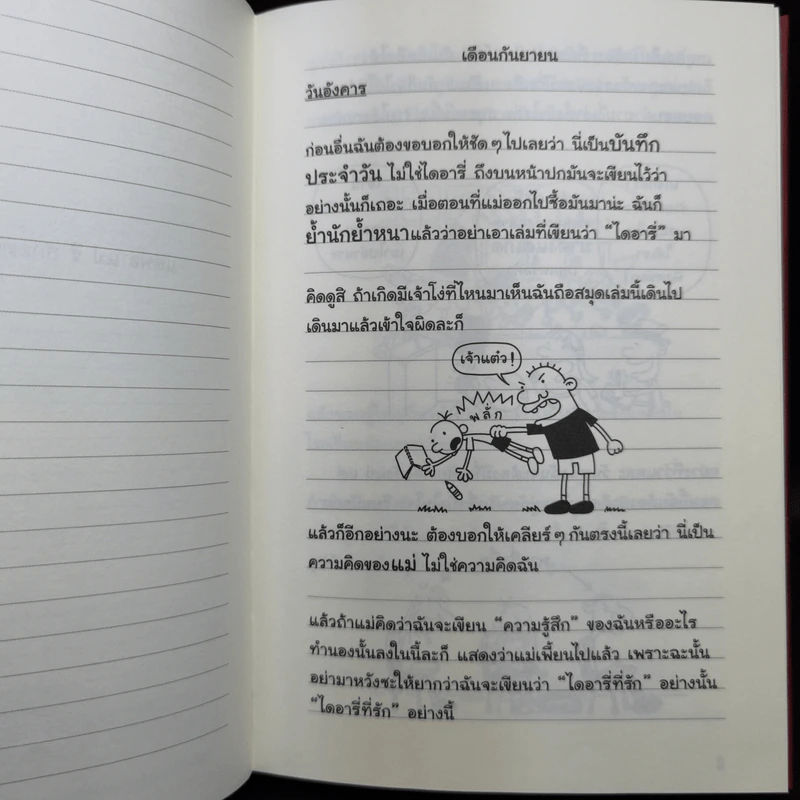 เดือนกันยายน
วันอังคาร
ก่อนอื่นฉันต้องขอบอกให้ชัดๆไปเลยว่า นี่เป็นบันทึก
ประจำวัน ไม่ใช่ไดอารี่ ถึงบนหน้าปกมันจะเขียนไว้ว่า
อย่างนั้นก็เถอะ เมื่อตอนที่แม่ออกไปซื้อมันมาน่ะ ฉันก็
ย้ำนักย้ำหนาแล้วว่าอย่าเอาเล่มที่เขียนว่า “ไดอารี่” มา
คิดดูสิ ถ้าเกิดมีเจ้าโง่ที่ไหนมาเห็นฉันถือสมุดเล่มนี้เดินไป
เดินมาแล้วเข้าใจผิดละก็
เจ้าแต๋ว!
พลั่ก
แล้วก็อีกอย่างนะ ต้องบอกให้เคลียร์ๆกันตรงนี้เลยว่า นี่เป็น
ความคิดของแม่ ไม่ใช่ความคิดฉัน
แล้วถ้าแม่คิดว่าฉันจะเขียน “ความรู้สึก” ของฉันหรืออะไร
ทำนองนั้นลงในนี้ละก็ แสดงว่าแม่เพี้ยนไปแล้ว เพราะฉะนั้น
อย่ามาหวังซะให้ยากว่าฉันจะเขียนว่า “ไดอารี่ที่รัก” อย่างนั้น
“ไดอารี่ที่รัก” อย่างนี้